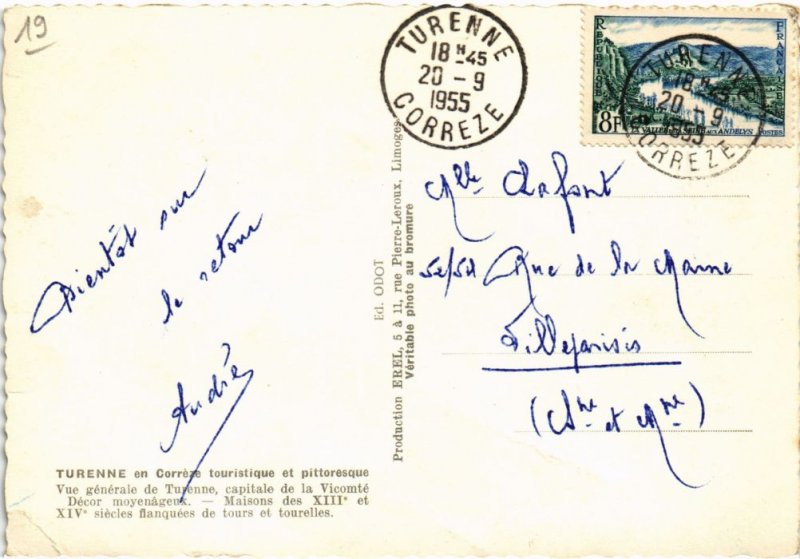 19
TURENNE
18H45
20-9
1955
CORREZE
REPUBLIQUE FRANÇAISE
8F
LA VALLÉE DE LA SEINE AUX ANDELYS
POSTES
TURENNE
18H45
20-9
1955
CORREZE
Bientôt sur
le retour
André
TURENNE en Corrèze touristique et pittoresque
Vue générale de Turenne, capitale de la Vicomté
Décor moyenâgeux. — Maisons des XIII° et
XIV° siècles flanquées de tours et tourelles.
Production EREL, 5 à 11, rue Pierre-Leroux, Limoges
Ed. ODOT
Véritable photo au bromure
Mlle Lafont
Rue de la Marne
Villeparisis
(Sne et Mne)